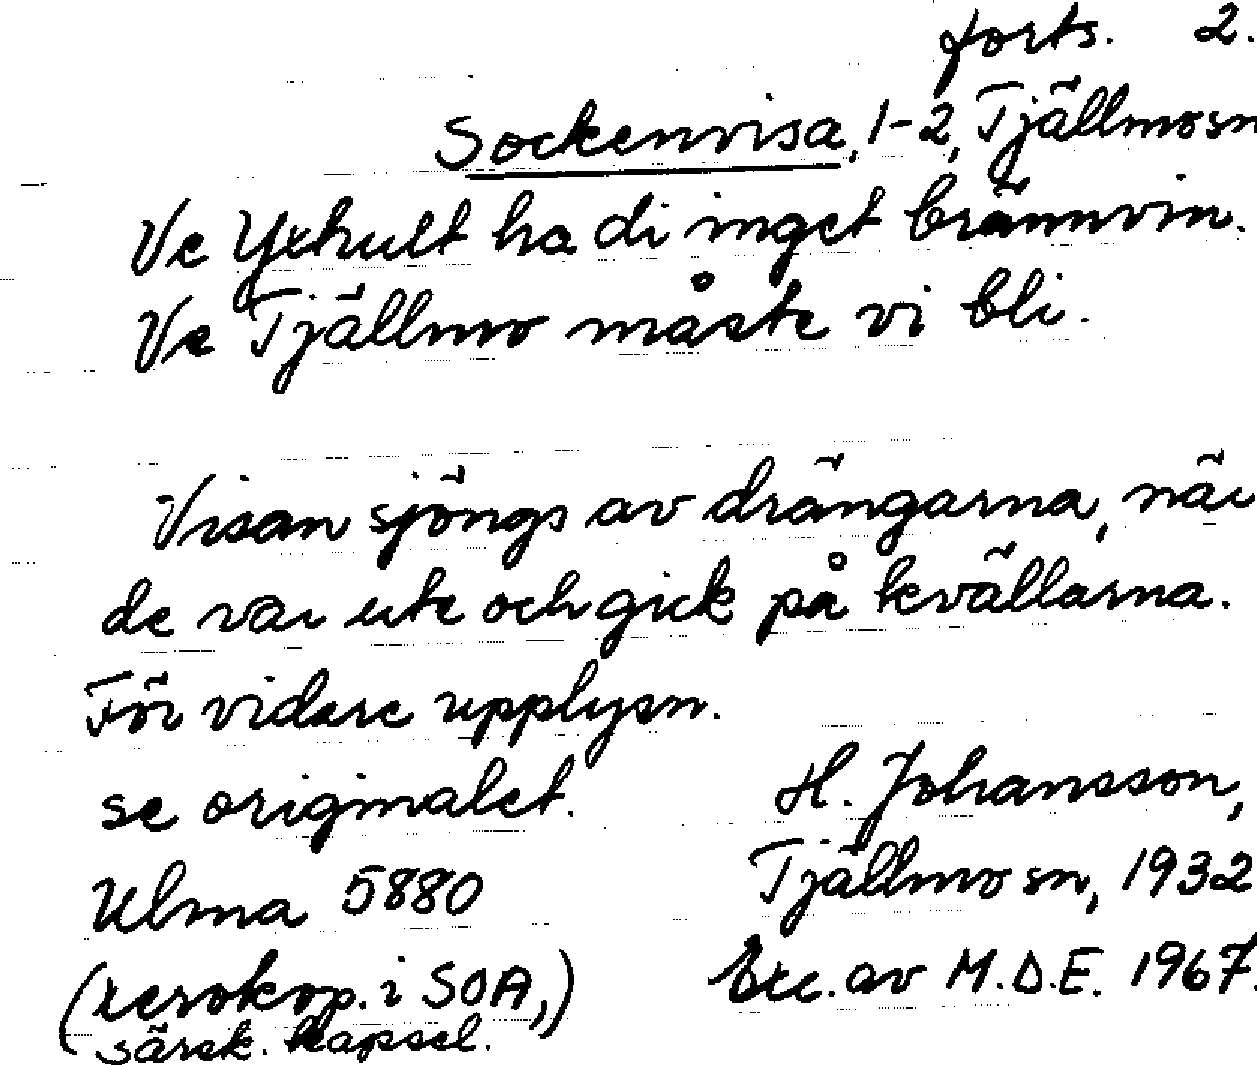 forts. 2.
Sockenvisa, 1-2, Tjällmo sn
Ve Yxhult ha di inget brännvin.
Ve Tjällmo måste vi bli.
Visan sjöngs av drängarna, när
de var ute och gick på kvällarna.
För vidare upplysn.
se originalet.
H. Johansson,
Ulma 5880
Tjällmo sn, 1932
(xerokop. i SOA,)
särsk. kapsel.
Exc. av M.D.E. 1967.